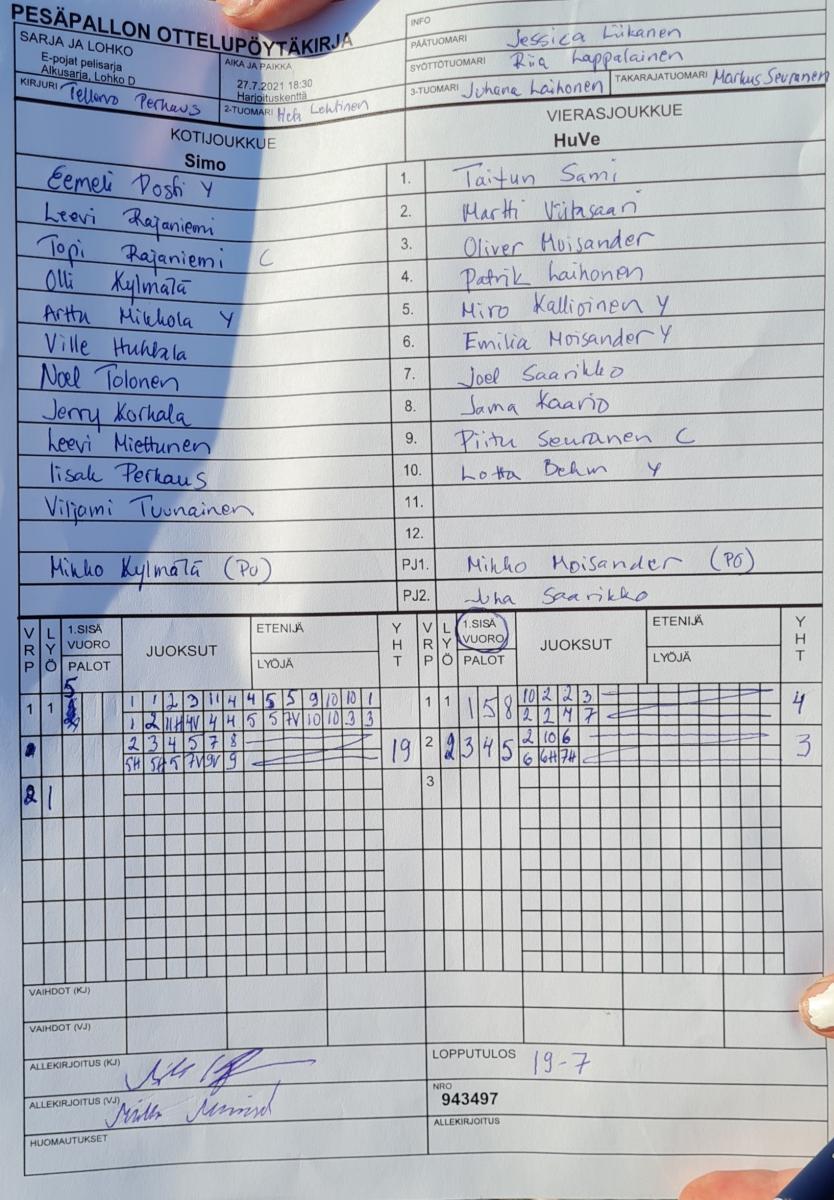 PESÄPALLON OTTELUPÖYTÄKIRJA
SARJA JA LOHKO
E-pojat pelisarja
Alkusarja, Lohko D
AIKA JA PAIKKA
27.7.2021 18:30
Harjoituskenttä
KIRJURI Tellervo Perhaus
2-TUOMARI Heta Lehtinen
INFO
PÄÄTUOMARI Jessica Liikanen
SYÖTTÖTUOMARI Riia Lappalainen
3-TUOMARI Juhana Laihonen
TAKARAJATUOMARI Markus Seuranen
KOTIJOUKKUE
Simo
VIERASJOUKKUE
HuVe
Eemeli Posti Y 1. Taifun Sami
Leevi Rajaniemi 2. Martti Viitasaari
Topi Rajaniemi C 3. Oliver Moisander
Olli Kylmälä 4. Patrik Laihonen
Arttu Mikkola Y 5. Miro Kallioinen Y
Ville Huhtala 6. Emilia Moisander Y
Noel Tolonen 7. Joel Saarikko
Jerry Korhala 8. Kaario
Leevi Miettunen 9. Piitu Seuranen C
Iisak Perhaus 10. Lotta Behm Y
Viljami Tuunainen 11.
12.
Mikko Kylmälä (PU) PJ1. Mikko Moisander (PÖ)
PJ2. Juha Saarikko
VRP LYÖ 1.SISÄ VUORO PALOT JUOKSUT ETENIJÄ LYÖJÄ YHT VRP LYÖ 1.SISÄ VUORO PALOT JUOKSUT ETENIJÄ LYÖJÄ YHT
1 1 5 1 1 2 3 11 4 4 5 5 9 10 10 1 1 1 1 5 8 10 2 2 3 4
1 2 11H 4V 4 4 5 5 7V 10 10 3 3 2 2 4 7
2 3 4 5 7 8 19 2 2 3 4 5 2 10 6 3
5H 5H 5 7V 9V 9 6 6H 7H
2 1 3
VAIHDOT (KJ)
VAIHDOT (VJ)
ALLEKIRJOITUS (KJ)
LOPPUTULOS 19-7
ALLEKIRJOITUS (VJ)
NRO
943497
HUOMAUTUKSET
ALLEKIRJOITUS